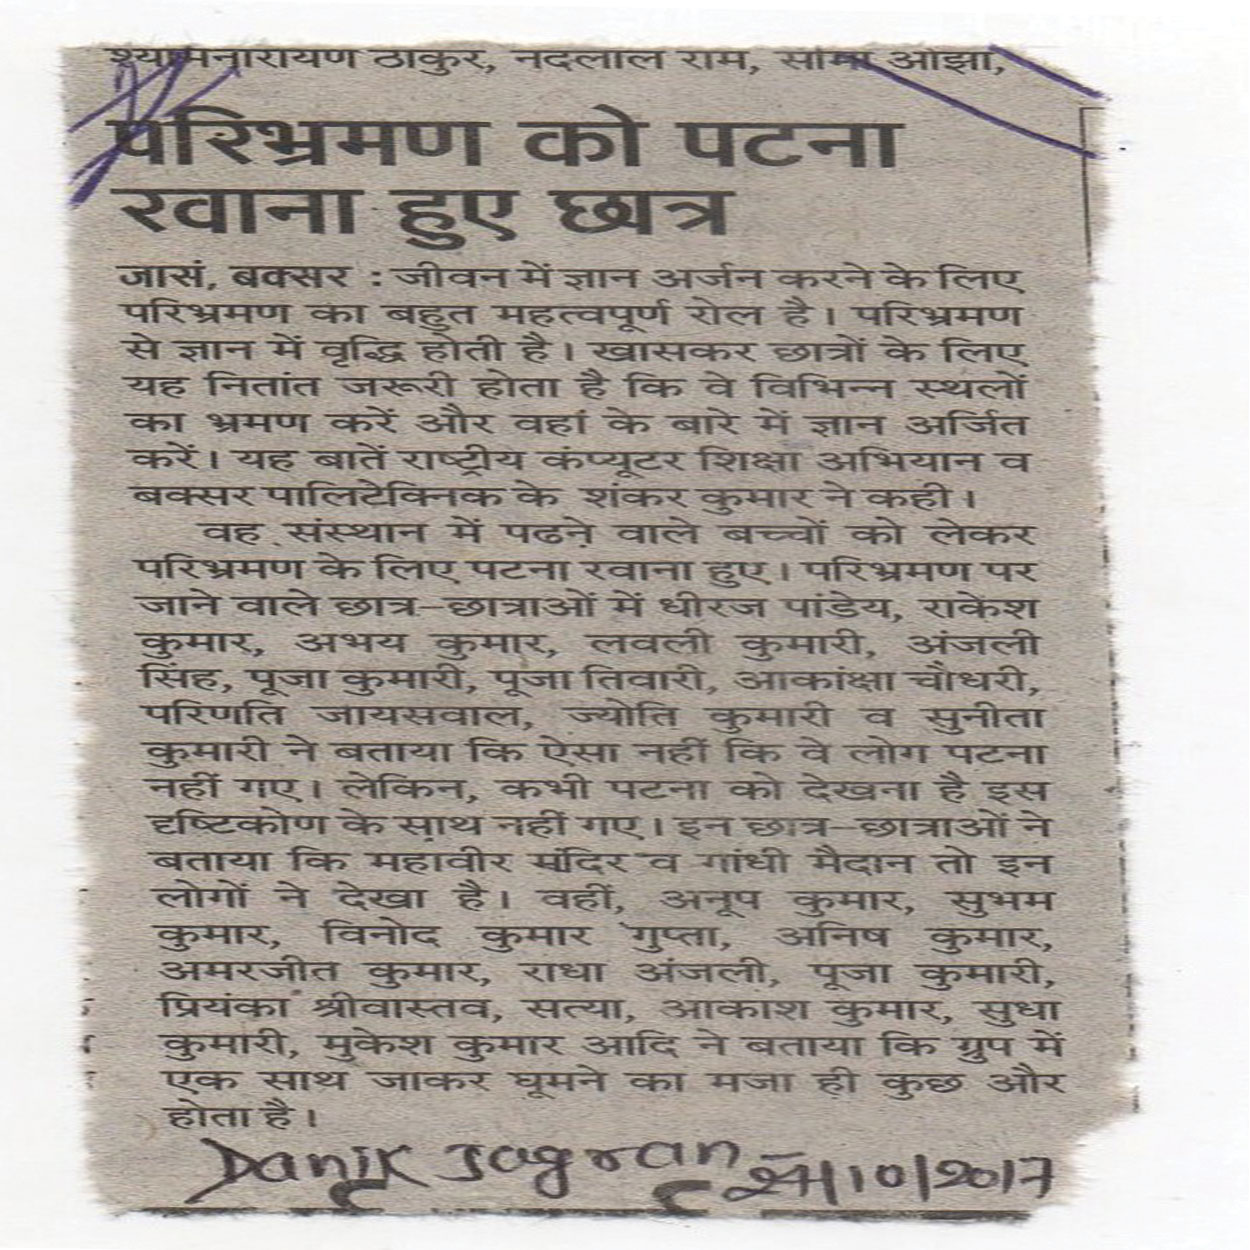 श्यामनारायण ठाकुर, नदलाल राम, सोमा ओझा,
परिभ्रमण को पटना
रवाना हुए छात्र
जासं, बक्सर : जीवन में ज्ञान अर्जन करने के लिए
परिभ्रमण का बहुत महत्वपूर्ण रोल है। परिभ्रमण
से ज्ञान में वृद्धि होती है। खासकर छात्रों के लिए
यह नितांत जरूरी होता है कि वे विभिन्न स्थलों
का भ्रमण करें और वहां के बारे में ज्ञान अर्जित
करें। यह बातें राष्ट्रीय कंप्यूटर शिक्षा अभियान व
बक्सर पालिटेक्निक के शंकर कुमार ने कही।
वह संस्थान में पढने वाले बच्चों को लेकर
परिभ्रमण के लिए पटना रवाना हुए। परिभ्रमण पर
जाने वाले छात्र-छात्राओं में धीरज पांडेय, राकेश
कुमार, अभय कुमार, लवली कुमारी, अंजली
सिंह, पूजा कुमारी, पूजा तिवारी, आकांक्षा चौधरी,
परिणति जायसवाल, ज्योति कुमारी व सुनीता
कुमारी ने बताया कि ऐसा नहीं कि वे लोग पटना
नहीं गए। लेकिन, कभी पटना को देखना है इस
दृष्टिकोण के साथ नहीं गए। इन छात्र-छात्राओं ने
बताया कि महावीर मंदिर व गांधी मैदान तो इन
लोगों ने देखा है। वहीं, अनूप कुमार, सुभम
कुमार, विनोद कुमार गुप्ता, अनिष कुमार,
अमरजीत कुमार, राधा अंजली, पूजा कुमारी,
प्रियंका श्रीवास्तव, सत्या, आकाश कुमार, सुधा
कुमारी, मुकेश कुमार आदि ने बताया कि ग्रुप में
एक साथ जाकर घूमने का मजा ही कुछ और
होता है।
Danik Jagran /10/2017